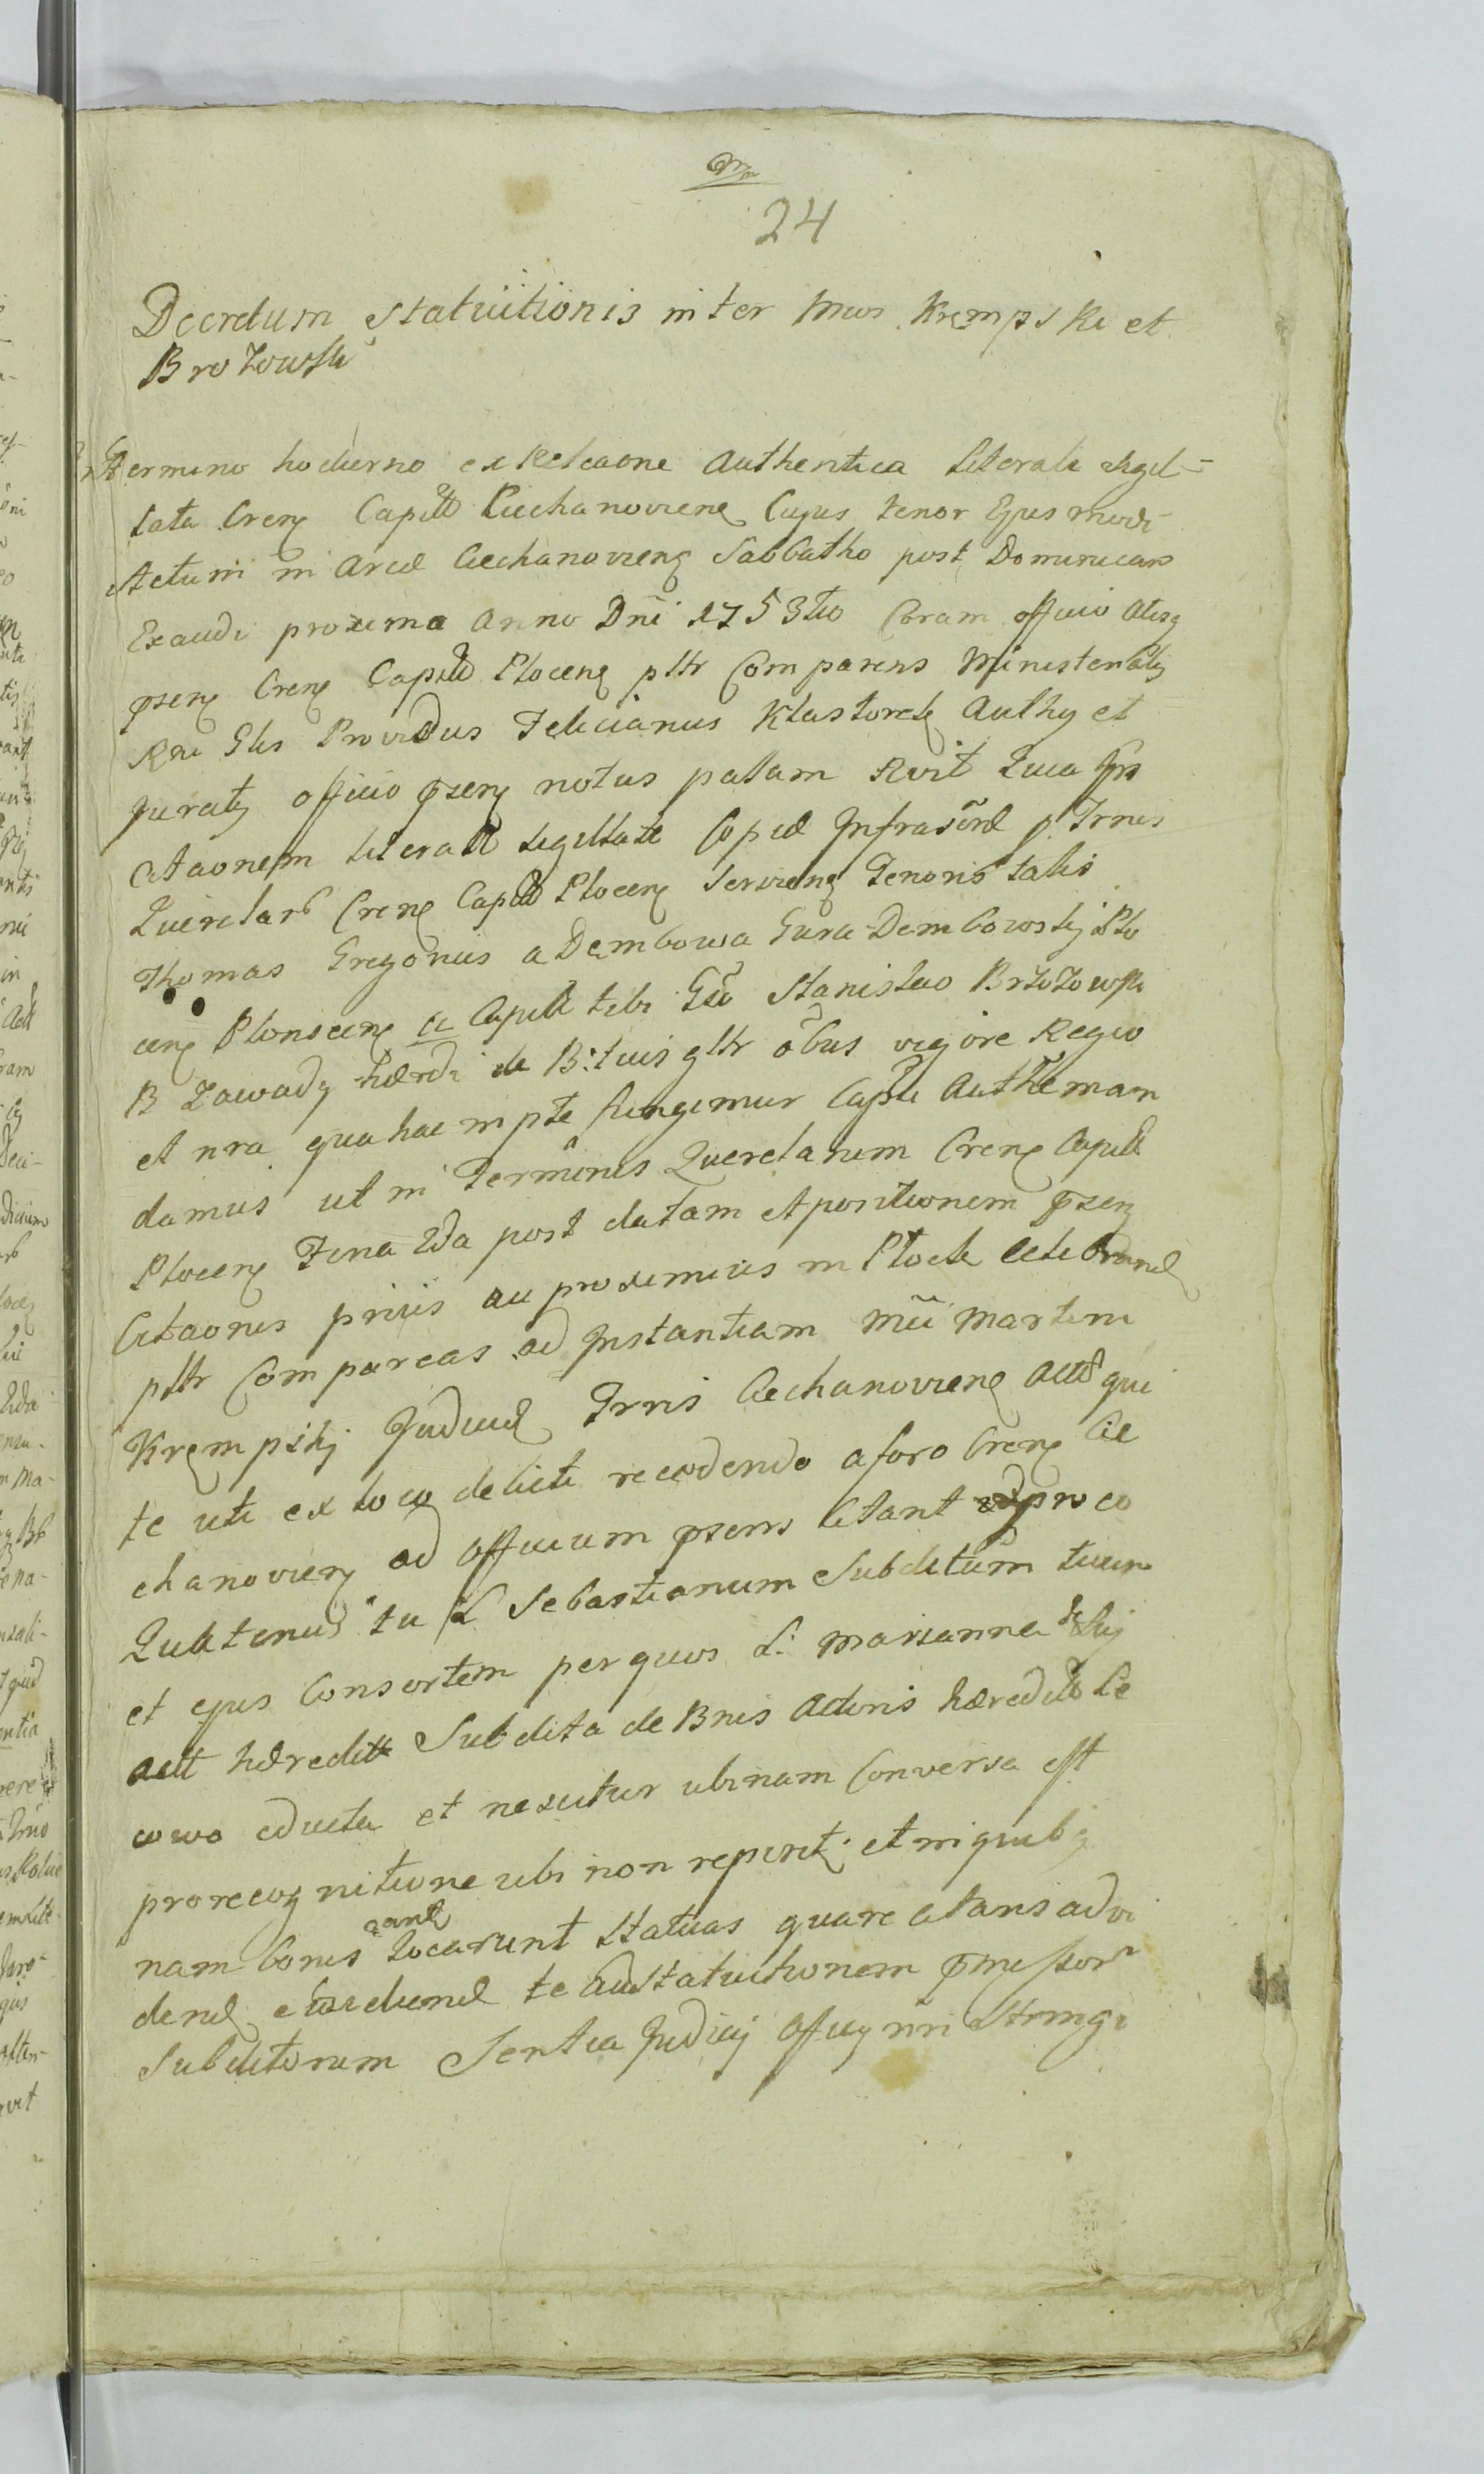 24
Decretum Statuitionis inter Mcos Krempski et
Brozowski
In Termino hodierno ex Relcaone Authentica Literali Sigil-
lata Crens Capitt Ciechanoviens Cuyus tenor Ejusmodi
Actum in Arce Ciechanoviens Sabbatho post Dominicam
Exaudi proxima Anno Dni 1753tio Coram officio Atisq
psens Crens Capitt Plocens pltr Comparens Ministerialis
Rni Glis Providus Felicianus Klastorek Authcus et
juratus officio psens notus palam rvit Quia Ips
Citaonem literall Sigillatt Copiae Infrascriptae p. Trnis
Querelarb Crens Capitt Plocens Serviens Tenoris talis
Thomas Gregorius a Dembowa Gura Dembowskj Plo
cens Plonscens et Capitt tibi Gso Stanislao Brzozowski
B Zawady haerdi de B: tuis gltr obus vigore Regio
et nra qua hac in pte fungimur Capli Auttte man
damus ut in Terminis Querelarum Crens Capitt
Plocens Feria 2da post datam et positionem psens
Citaonis prius ac proximius in Plock celebrand
pltr Compareas ad Instantiam Mci Martini
Krempskj Judicis Trris Ciechanoviens Actt qui
te uti ex loco delicti recedendo a foro Crens Cie
chanoviens ad officium psens Citant pro eo
Quatenus tu L Sebastianum Subditum tuum
et ejus Consortem per quos L: Marianna
actt haereditt Subdita de Bnis Actoris haereditt Le
cowo educta et nescitur ubinam Conversa est
pro recognitione ubi non reperit et in quibus
nam bonis Locarunt Statuas quare citaris ad vi
dend et audiend te ad Statuitionem pmissor
Subditorum Sentia Judicij Officij nri Stringi